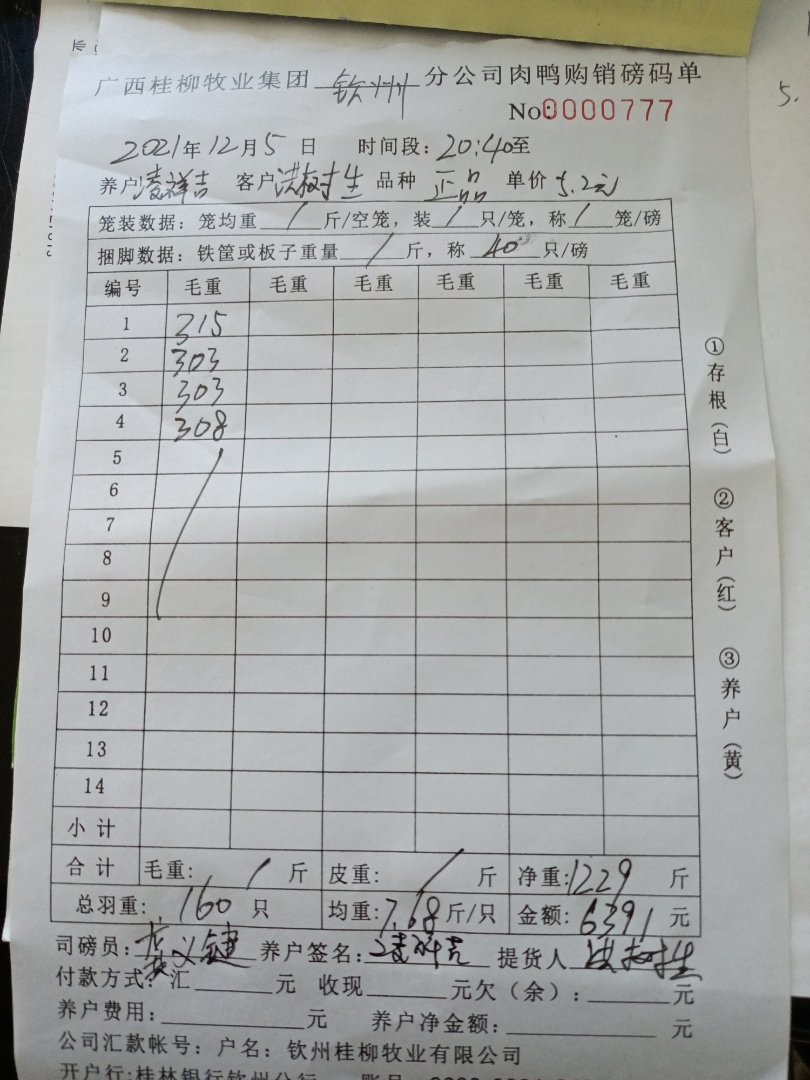 广西桂柳牧业集团 钦州 分公司肉鸭购销磅码单
No:0000777
2021年12月5日 时间段:20:40至
养户凌祥吉 客户洪树生 品种 正品 单价5.2元
笼装数据:笼均重 / 斤/空笼,装 / 只/笼,称 / 笼/磅
捆脚数据:铁筐或板子重量 / 斤,称 40 只/磅
编号 毛重 毛重 毛重 毛重 毛重 毛重
1 315
2 303
3 303
4 308
5
6
7
8
9
10
11
12
13
14
小计
合计 毛重: / 斤 皮重: / 斤 净重:1229 斤
总羽重:160 只 均重:7.68斤/只 金额:6391元
司磅员: 养户签名:凌祥吉 提货人 洪树生
付款方式:汇 元 收现 元欠(余): 元
养户费用: 元 养户净金额: 元
公司汇款帐号:户名:钦州桂柳牧业有限公司
开户行:桂林银行钦州分行
①存根(白)
②客户(红)
③养户(黄)
5.